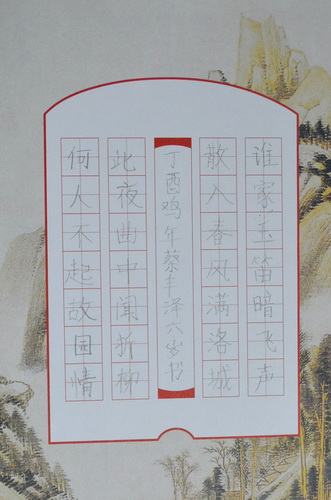 谁家玉笛暗飞声
散入春风满洛城
丁酉鸡年蔡丰泽六岁书
此夜曲中闻折柳
何人不起故园情